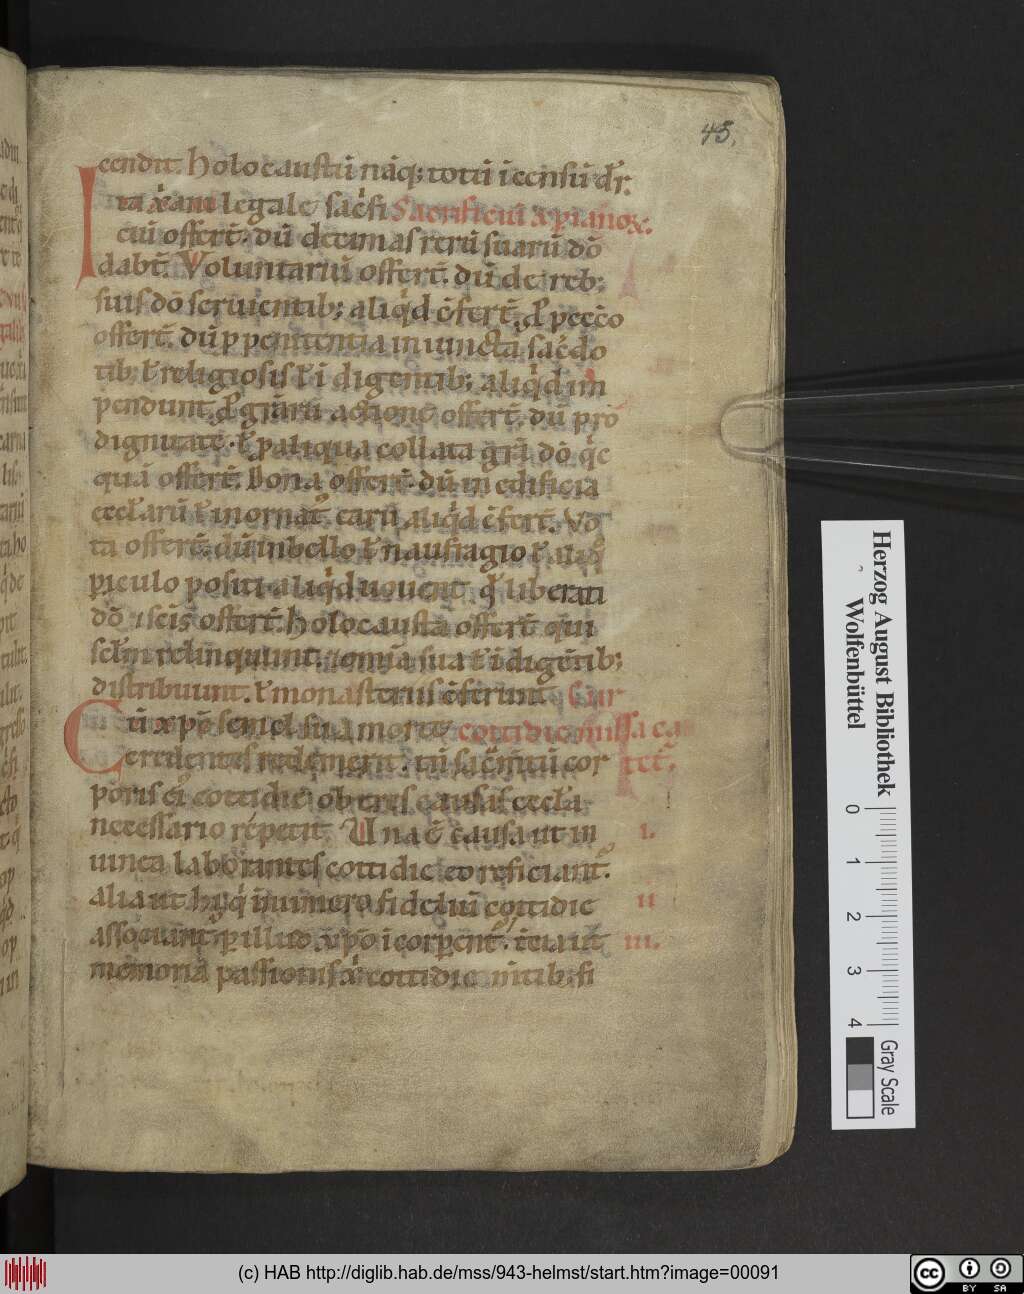 45.
cendit. holocaustū nāq; totū īcensū dr̄.
Ita xp̄iani legale sac̄fi Sacrificiū xp̄ianoꝝ.
ciū offerт̄. dū decimas rerū suarū dō
dabт̄. Voluntariū offerт̄. dū de reb;
suis dō seruientib; aliq̇d ꝯferт̄. ꝓ pecc̄o
offerт̄. dū ꝑ penitentia iniuncta sac̄do
tib; ł religiosis ł īdigentib; aliq̇d im
pendunt. ꝓ gr̄arū actione offerт̄. dū pro
dignitate. ł ꝑ aliqua collata gr̄a dō q̇c
quā offerт̄. Dona offerт̄. dū in edificia
ecclarū ł in ornat᷒ earū aliq̇d ꝯferт̄. Vo
ta offerт̄. dū in bello ł naufragio ł alio
ꝑiculo positi aliq̇d uouent. q̄ liberati
dō ⁊ scīs offerт̄. holocausta offerт̄ qui
sclm̄ relinquunt. ⁊ omīa sua ł īdigētib;
distribuunt. ł monasteriis ꝯferunt. Cur
Cū xp̄c semel sua morte cottidie missa ca
credentes redemerit. tn̄ sac̄mtū cor
poris ei᷒ cottidie ob tres causas eccła
necessario repetit. Una ē causa ut in I.
uinea laborantes cottidie eo reficiant᷒.
alia ut hiq̇ in numero fideliū cottidie II
associant᷒ ꝑ illud xp̄o īcorporent᷒. t̄cia ut III.
memoria passionis x̄ cottidie mtib; fi
Herzog August Bibliothek
Wolfenbüttel
0 1 2 3 4
Gray Scale
(c) HAB http://diglib.hab.de/mss/943-helmst/start.htm?image=00091
cc BY SA